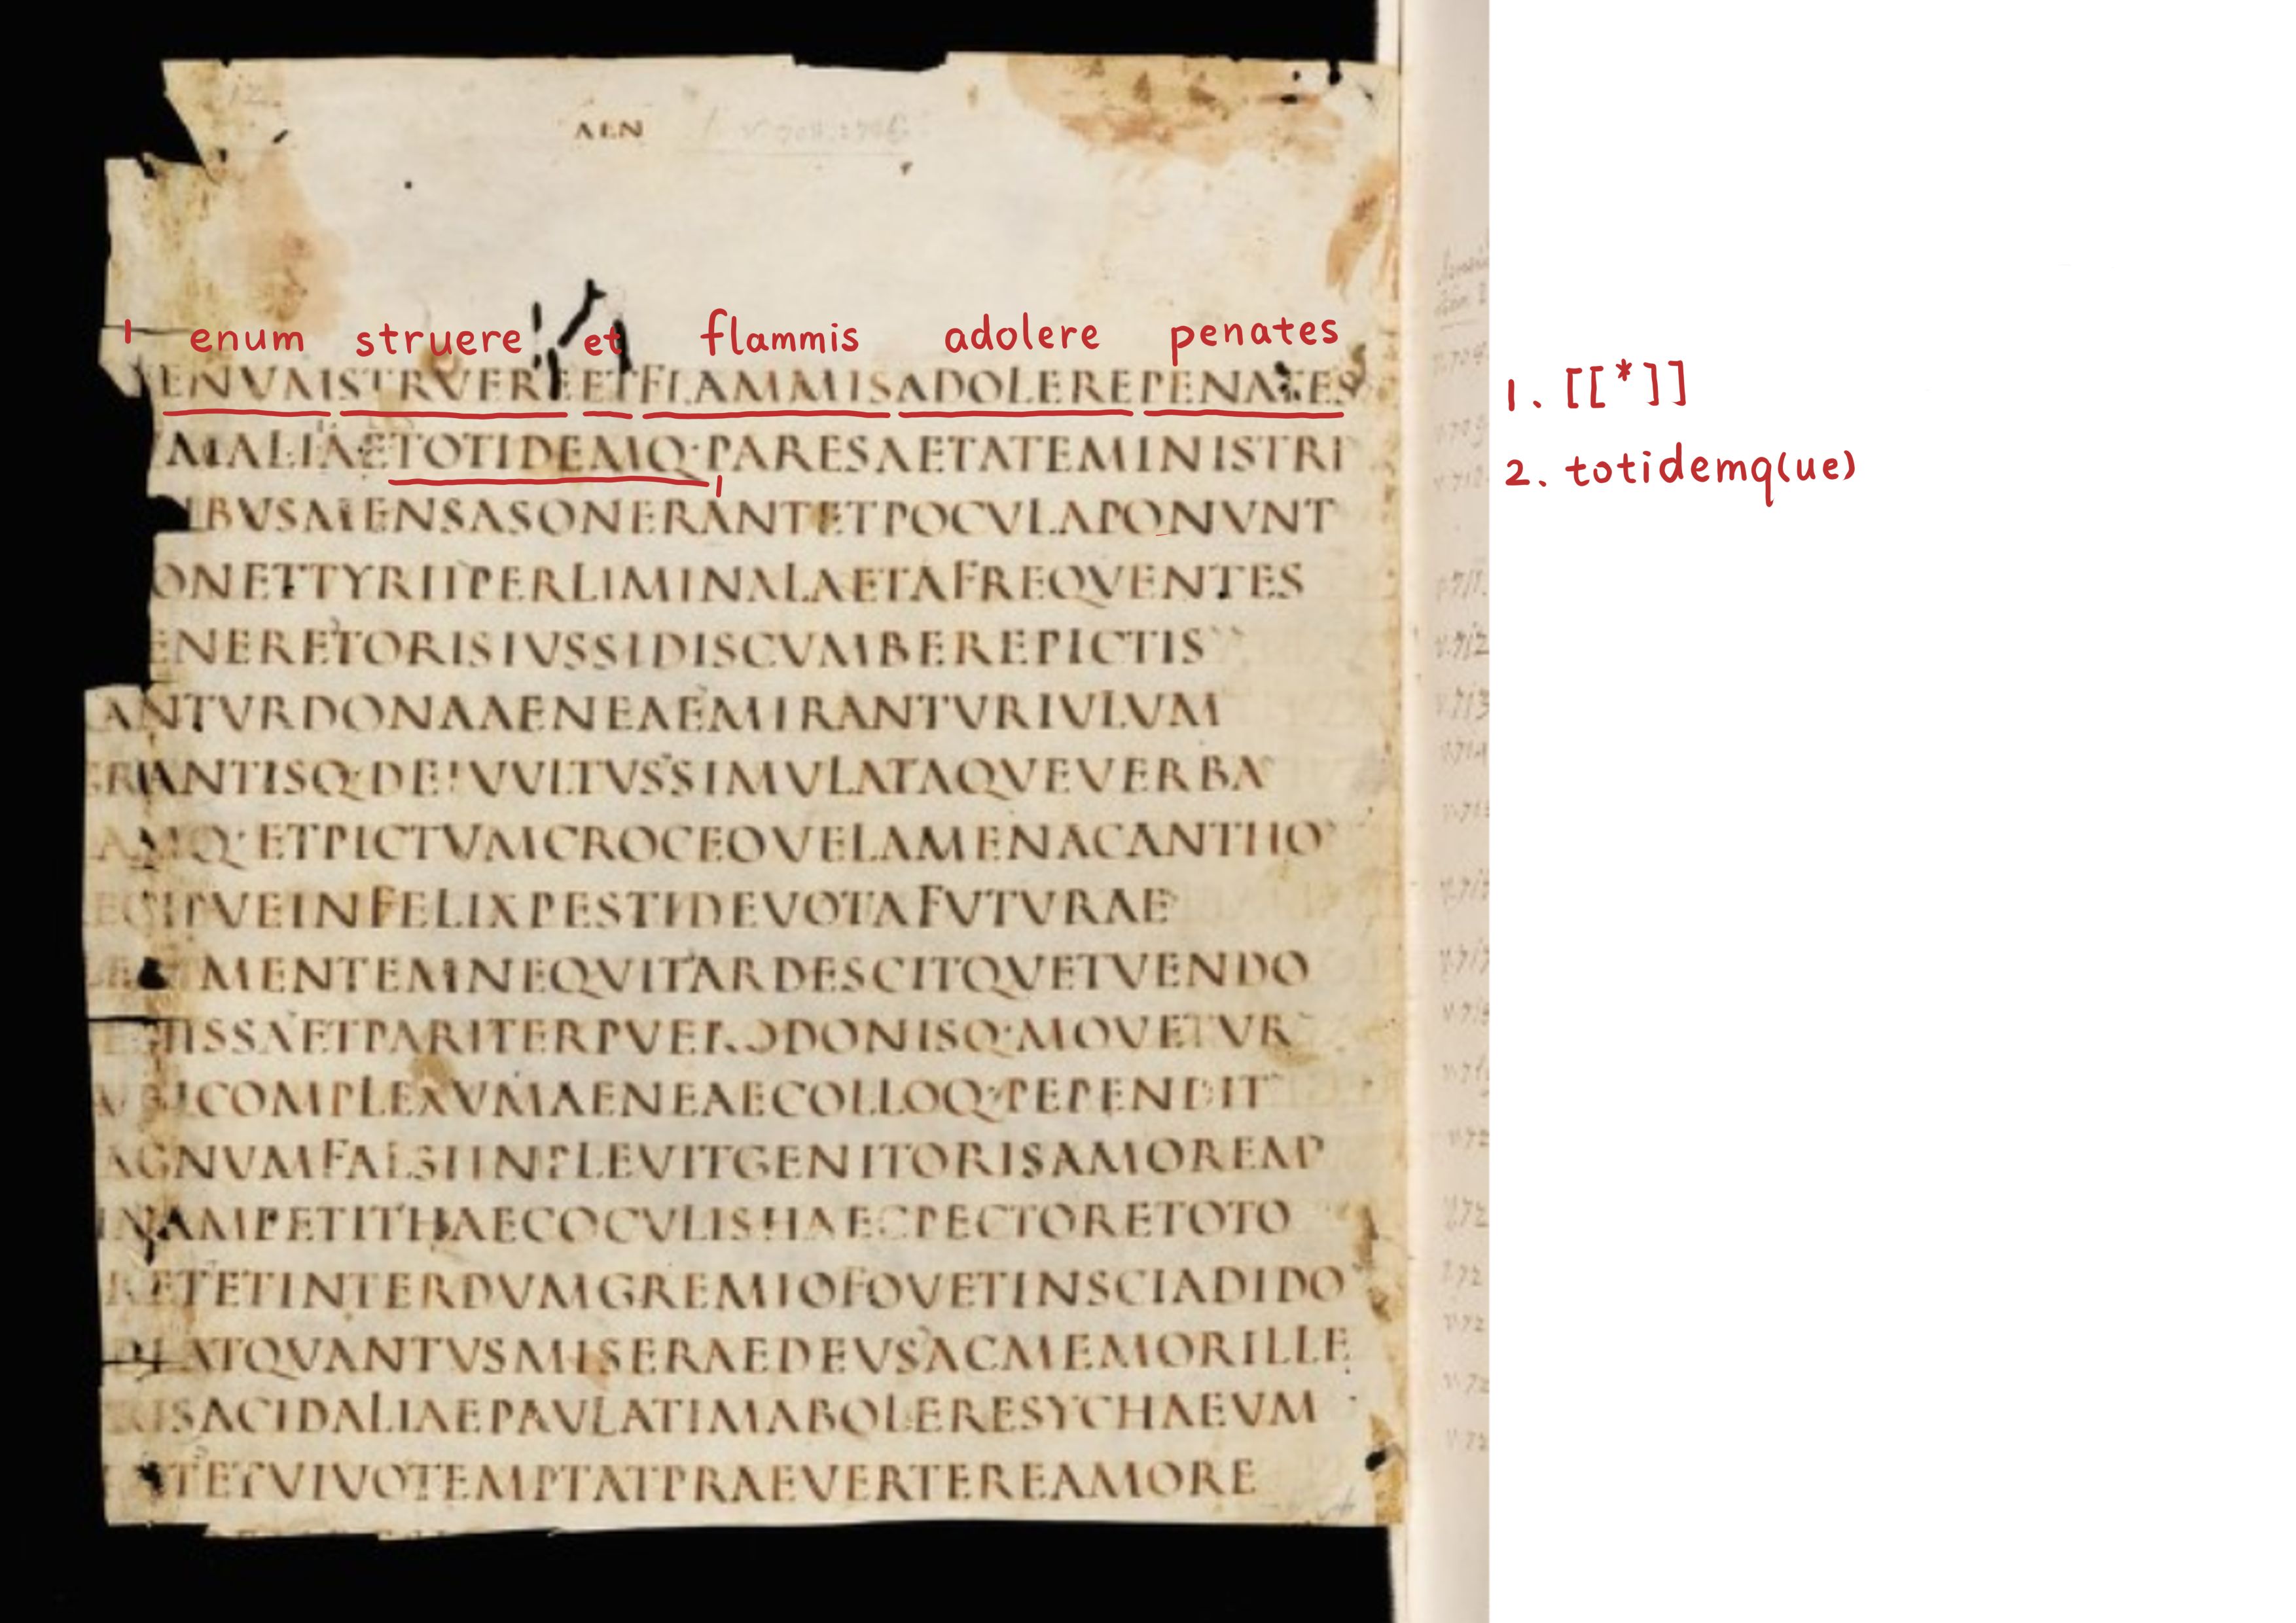 AEN
1 enum struere et flammis adolere penates
ENVMSTRVEREETFLAMMISADOLEREPENATES
MALIAETOTIDEMQ·PARESAETATEMINISTRI
IBVSMENSASONERANTETPOCVLAPONVNT
ONETTYRIIPERLIMINALAETAFREQVENTES
ENERETORISIVSSIDISCVMBEREPICTIS
ANTVRDONAAENEAEMIRANTVRIVLVM
GRANTISQ·DEIVVLTVSSIMVLATAQVEVERBA
AMQ·ETPICTVMCROCEOVELAMENACANTHO
ECIPVEINFELIXPESTIDEVOTAFVTVRAE
MENTEMNEQVITARDESCITQVETVENDO
ISSAETPARITERPVERODONISQ·MOVETVR
VBICOMPLEXVMAENEAECOLLOQ·PEPENDIT
AGNVMFALSIINPLEVITGENITORISAMOREMP
INAMPETITHAECOCVLISHAECPECTORETOTO
RETETINTERDVMGREMIOFOVETINSCIADIDO
ATQVANTVSMISERAEDEVSACMEMORILLE
ISACIDALIAEPAVLATIMABOLERESYCHAEVM
TETVIVOTEMPTATPRAEVERTEREAMORE
1. [[*]]
2. totidemq(ue)